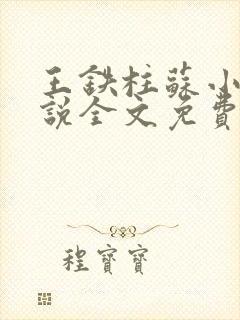 王鉄柱蘇小
說全文免費
程寶寶